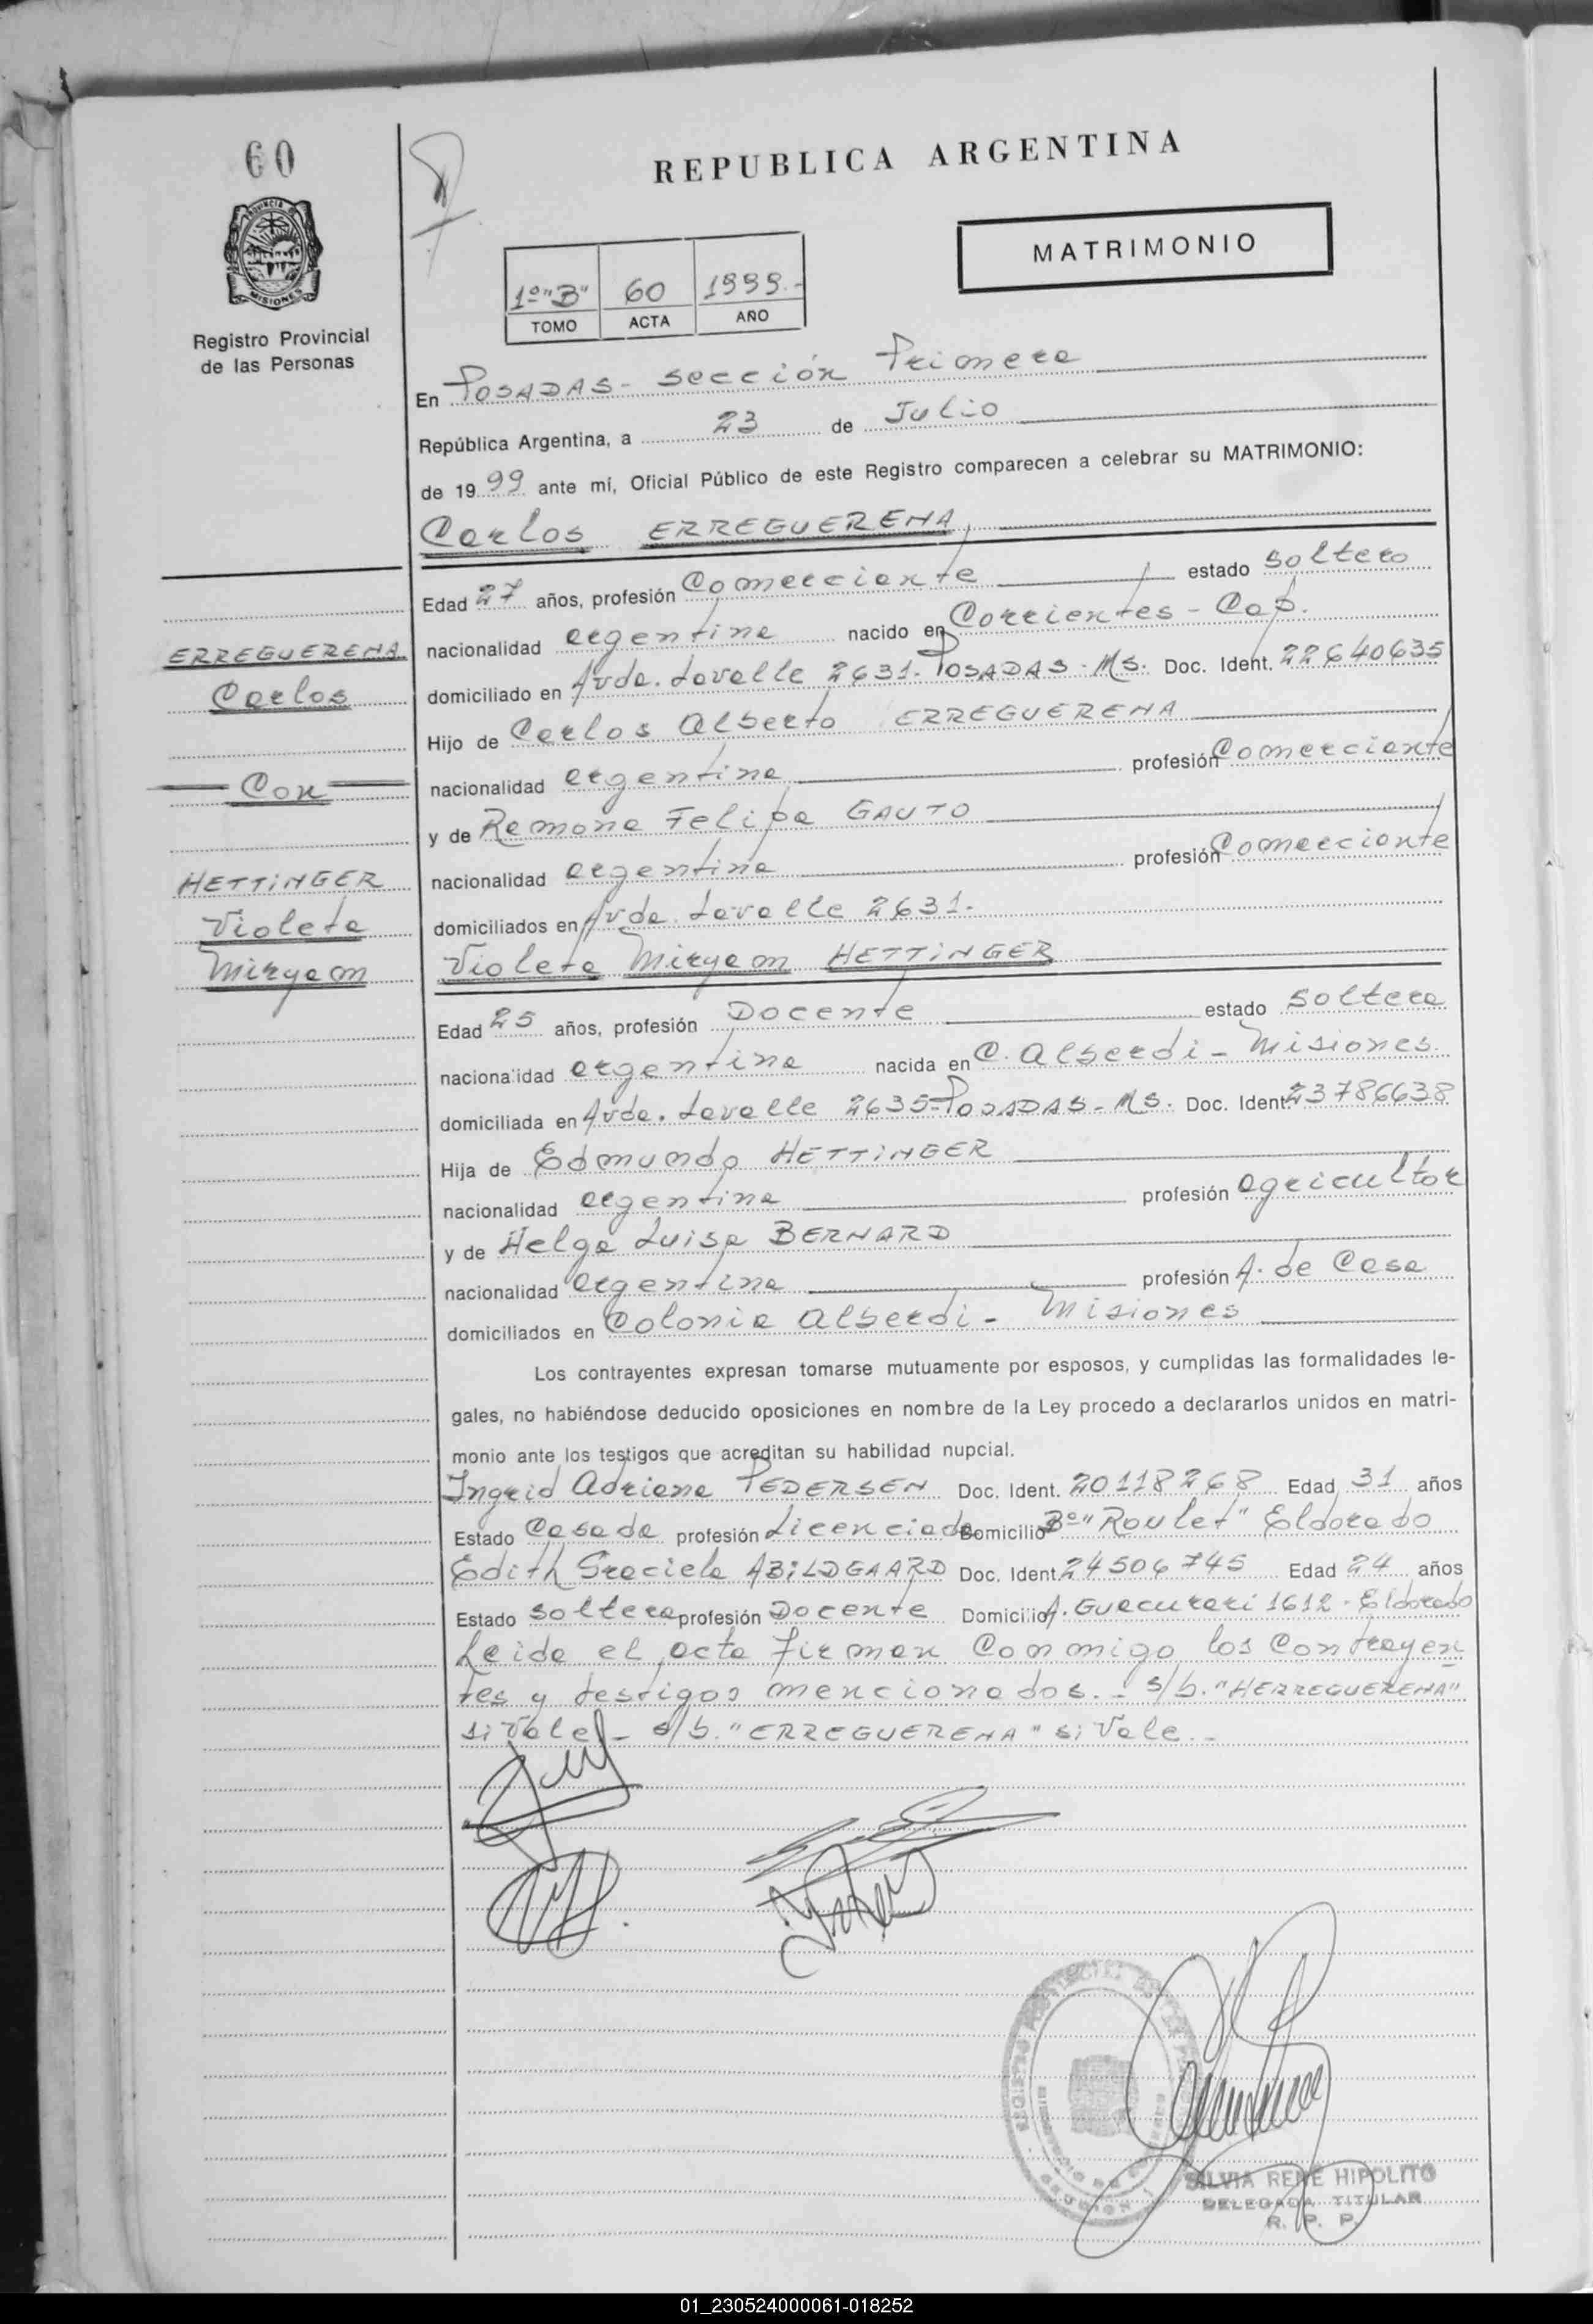 60
REPUBLICA ARGENTINA
MATRIMONIO
PROVINCIA DE
MISIONES
Registro Provincial
de las Personas
1º "B" 60 1999.-
TOMO ACTA AÑO
En POSADAS - Sección Primera
República Argentina, a 23 de Julio
de 1999 ante mí, Oficial Público de este Registro comparecen a celebrar su MATRIMONIO:
Carlos ERREGUERENA
Edad 27 años, profesión Comerciante estado soltero
nacionalidad argentina nacido en Corrientes - Cap.
domiciliado en Avda. Lavalle 2631. POSADAS - Ms. Doc. Ident. 22640635
Hijo de Carlos Alberto ERREGUERENA
nacionalidad argentina profesión Comerciante
y de Ramona Felipa GAUTO
nacionalidad argentina profesión Comerciante
domiciliados en Avda. Lavalle 2631.
Violeta Miryam HETTINGER
Edad 25 años, profesión Docente estado soltera
nacionalidad argentina nacida en C. Alberdi - Misiones
domiciliada en Avda. Lavalle 2635 - POSADAS - Ms. Doc. Ident. 23786638
Hija de Edmundo HETTINGER
nacionalidad argentina profesión agricultor
y de Helga Luisa BERNARD
nacionalidad argentina profesión A. de Casa
domiciliados en Colonia Alberdi - Misiones
ERREGUERENA
Carlos
Con
HETTINGER
Violeta
Miryam
Los contrayentes expresan tomarse mutuamente por esposos, y cumplidas las formalidades le-
gales, no habiéndose deducido oposiciones en nombre de la Ley procedo a declararlos unidos en matri-
monio ante los testigos que acreditan su habilidad nupcial.
Ingrid Adriana PEDERSEN Doc. Ident. 20118268 Edad 31 años
Estado Casada profesión Licenciada Domicilio Bº "Roulet" Eldorado
Edith Graciela ABILDGAARD Doc. Ident. 24506745 Edad 24 años
Estado soltera profesión Docente Domicilio A. Guacurarí 1612 - Eldorado
Leída el acta firman Conmigo los Contrayen
tes y testigos mencionados. - s/b. "HERREGUERENA"
si Vale - s/b. "ERREGUERENA" si Vale. -
SILVIA RENÉ HIPOLITO
DELEGADA TITULAR
R. P. P.
01_230524000061-018252